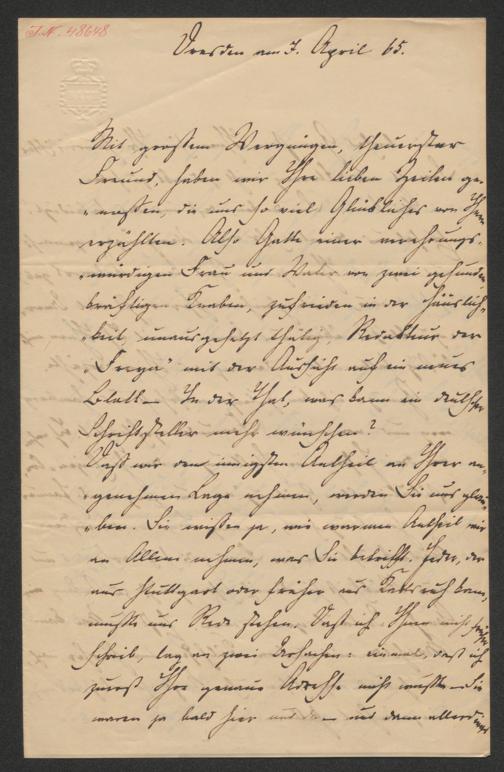 I.N. 48648
Dresden am 7. April 65.
Mit großem Vergnügen, theuerster
Freund, haben wir Ihre lieben Zeilen ge-
-nossen, die uns so viel Glückliches von Ihnen
erzählten. Also Gatte einer verehrungs-
-würdigen Frau und Vater von zwei gesunden
kräftigen Knaben, zufrieden in der Häuslich-
-keit, unausgesetzt thätig, Redakteur der
„Freya" mit der Aussicht auf ein neues
Blatt – In der That, was kann ein deutscher
Schriftsteller mehr wünschen?
Daß wir den innigsten Antheil an Ihrer an-
-genehmen Lage nehmen, werden Sie uns glau-
-ben. Sie wissen ja, wie warmen Antheil wir
an Allem nehmen, was Sie betrifft. Jeder, der
aus Stuttgart oder früher aus Karlsruh kam,
mußte uns Rede stehen. Daß ich Ihnen nicht
schrieb, lag an zwei Ursachen: einmal, daß ich
zuerst Ihre genaue Adresse nicht wußte – Sie
waren ja bald hier und da – und dann allerdings